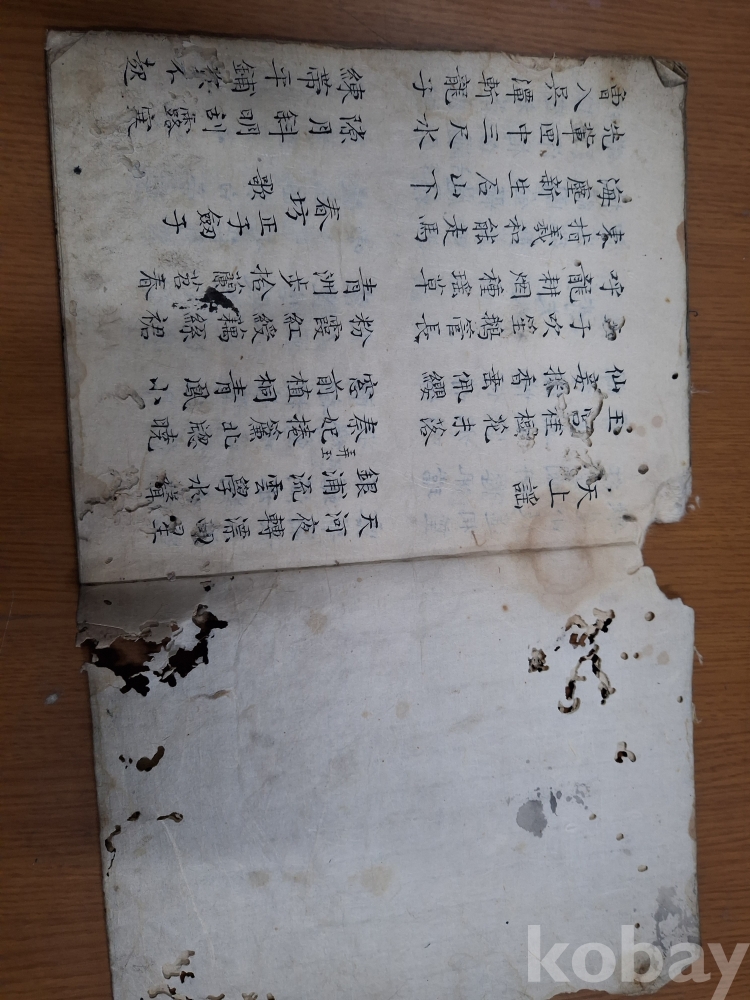 天上謠
天河夜轉漂回星
銀浦流雲學水聲
玉宮桂樹花未落
仙妾採香垂佩纓
秦妃弄玉捲簾北窓曉
窓前植桐青鳳小
子吹笙鵝管長
呼龍耕烟種瑤草
粉霞紅綬藕絲裙
青洲步拾蘭苕春
東指羲和能走馬
海塵新生石山下
春坊正子劒子歌
先輩匣中三尺水
曾入吳潭斬龍子
隙月斜明刮露寒
練帶平鋪吹不起
kobay